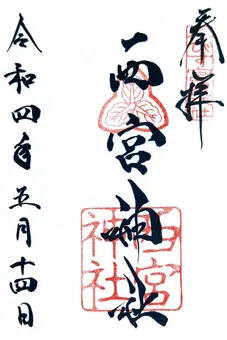 奉拝
西宮神社
西宮
神社
令和四年五月十四日